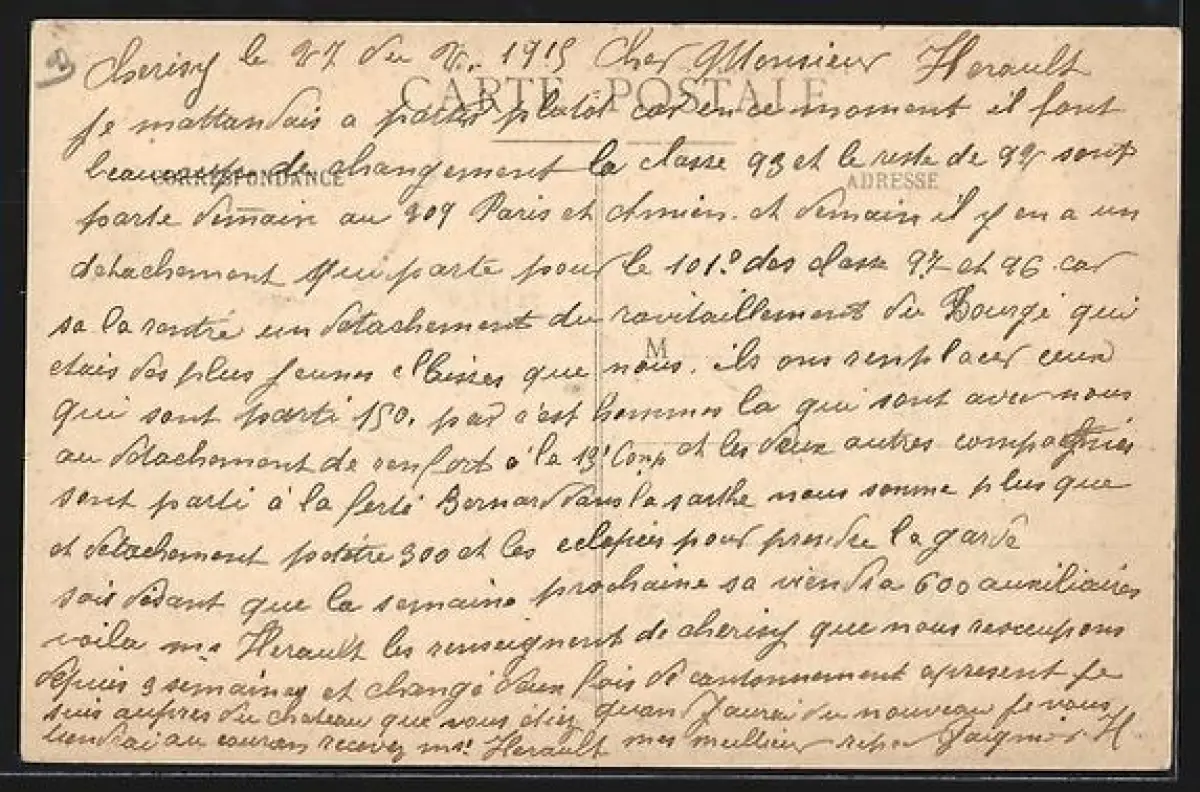 Cherisy le 27 du 1915 Cher Monsieur Herault
CARTE POSTALE
je mattandais a patir plutot car en ce moment il font
beaucoup de changement la classe 93 et le reste de 92 sont
CORRESPONDANCE
ADRESSE
parte demain au 309 Paris et Amien. et demain il y en a un
detachement qui parte pour le 101e des classe 97 et 96 car
sa la rentré un detachement du ravitaillement du Bourge qui
etais des plus jeunes classes que nous. ils ons remplacer ceux
M
qui sont parti 150. par c'est hommes la qui sont aver nous
au detachement de renfort à la 13e Comp et les deux autres compagnies
sont parti à la ferté Bernard dans la sarthe nous somme plus que
et detachement 300 et les eclopées pour prendre la garde
soit disant que la semaine prochaine sa viendra 600 auxiliaires
voila mr Herault les renseignent de cherisy que nous reoccupons
depuis 3 semaines et changé deux fois de cantonnement apresent je
suis aupres du chateau que vous étiez quand J'aurai du nouveau je vous
tiendrai au couran recevez mr Herault mes meilleur H.